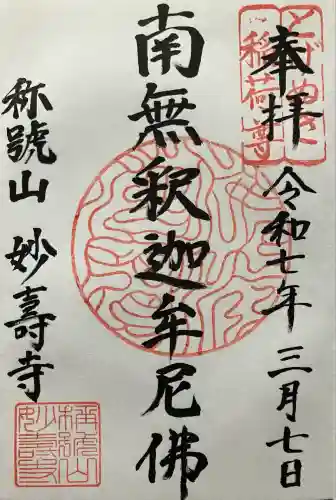 とげぬき
稲荷尊
奉拝
令和七年 三月七日
南無釈迦牟尼佛
称號山 妙壽寺
稱號山
妙壽寺